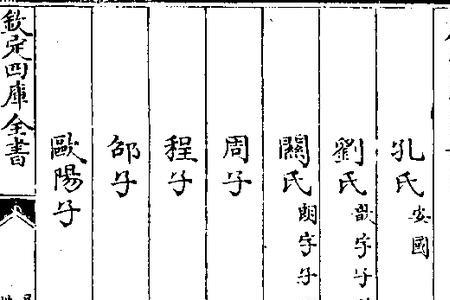 孔氏安國
劉氏歆字子
關氏朗字子
周子
程子
邵子
歐陽子
欽定四庫全書